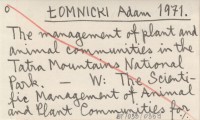 o ŁOMNICKI Adam 1971.
The management of plant and
animal communities in the
Tatra Mountains National
Park. — W: The Scienti-
fic Management of Animal
and Plant Communities for